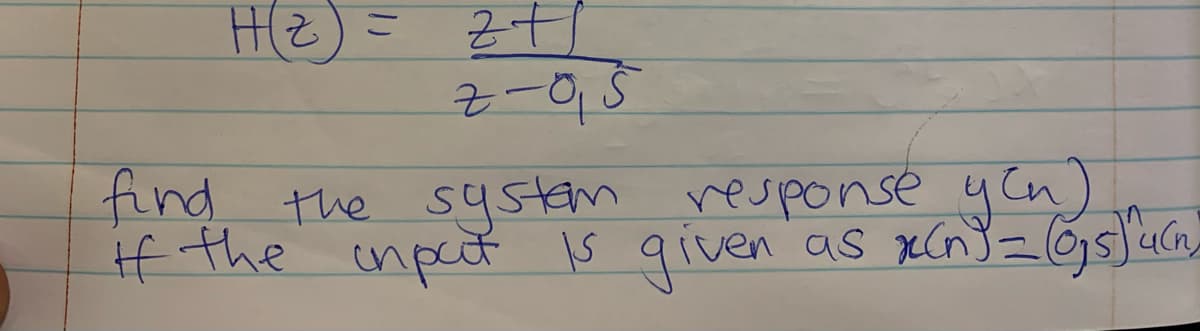 H(z) = z+1
z-0,5
find the system response y(n)
if the input is given as x(n) = (0,5)ⁿu(n)